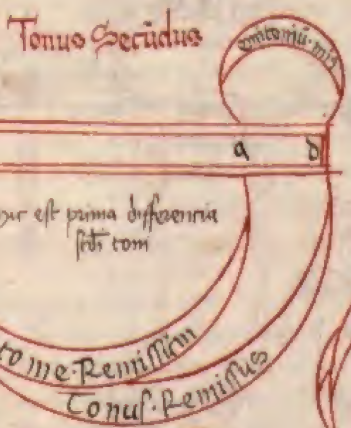 Tonus Secūdus
a d
hic est prima differencia
scdi toni
tome Remissum
Tonus Remissus